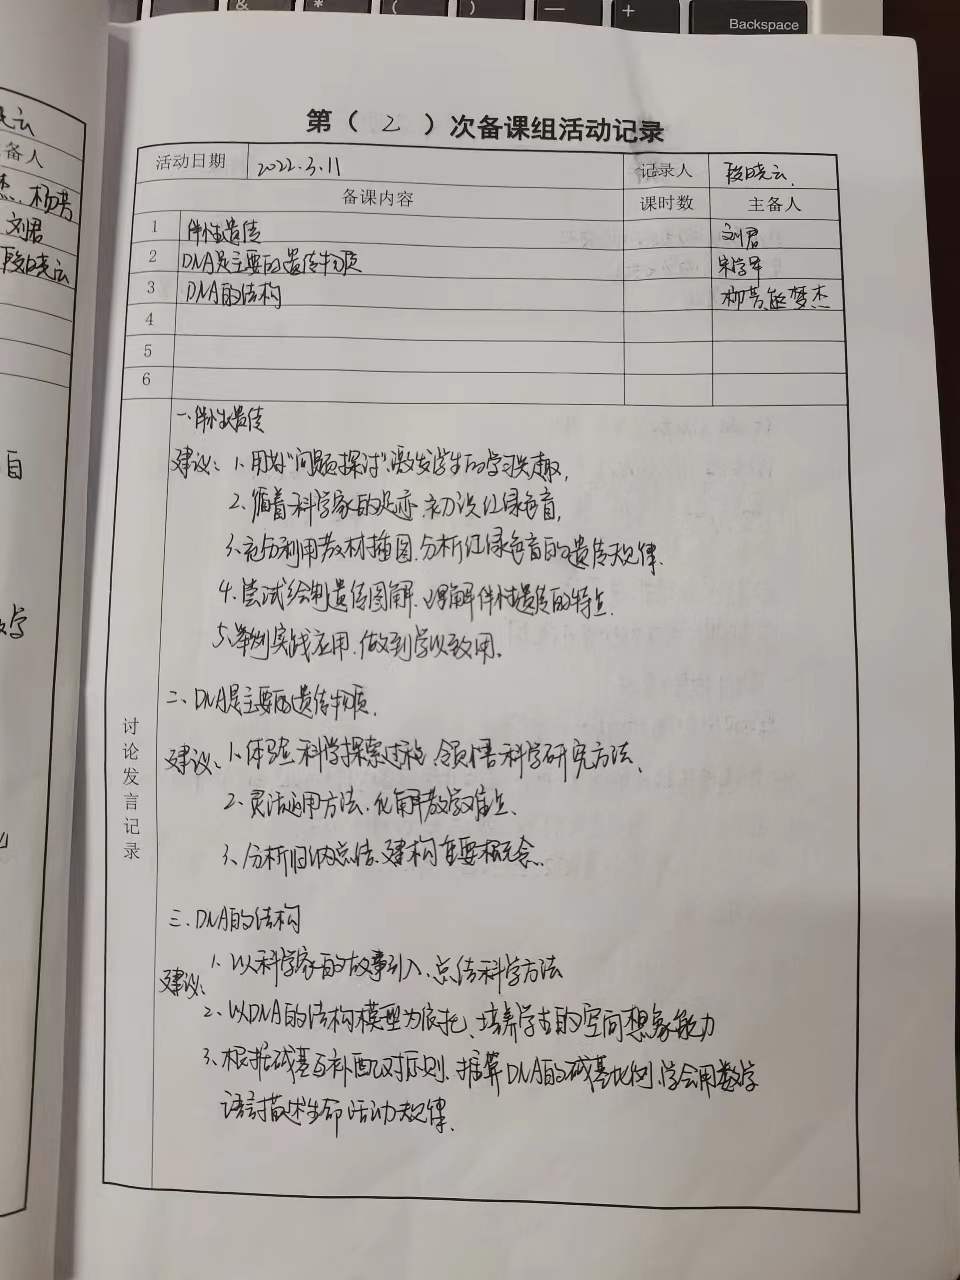 Backspace
第（ 2 ）次备课组活动记录
活动日期 2022.3.11 记录人 段晓云.
备课内容 课时数 主备人
1 伴性遗传 刘君
2 DNA是主要的遗传物质 宋学军
3 DNA的结构 柳芳,熊梦杰
4
5
6
讨论发言记录
一.伴性遗传
建议: 1.用好"问题探讨",激发学生的学习兴趣,
2.循着科学家的足迹,初识红绿色盲,
3.充分利用教材插图,分析红绿色盲的遗传规律.
4.尝试绘制遗传图解,理解伴性遗传的特点.
5.举例实践应用,做到学以致用。
二、DNA是主要的遗传物质.
建议: 1.体验科学探索过程,领悟科学研究方法、
2.灵活运用方法,化解教学难点、
3、分析归纳总结,建构重要概念.
三.DNA的结构
建议: 1.以科学家的故事引入,总结科学方法
2.以DNA的结构模型为依托、培养学生的空间想象能力
3.根据碱基互补配对原则,推算DNA的碱基比例,学会用数学
语言描述生命活动规律.